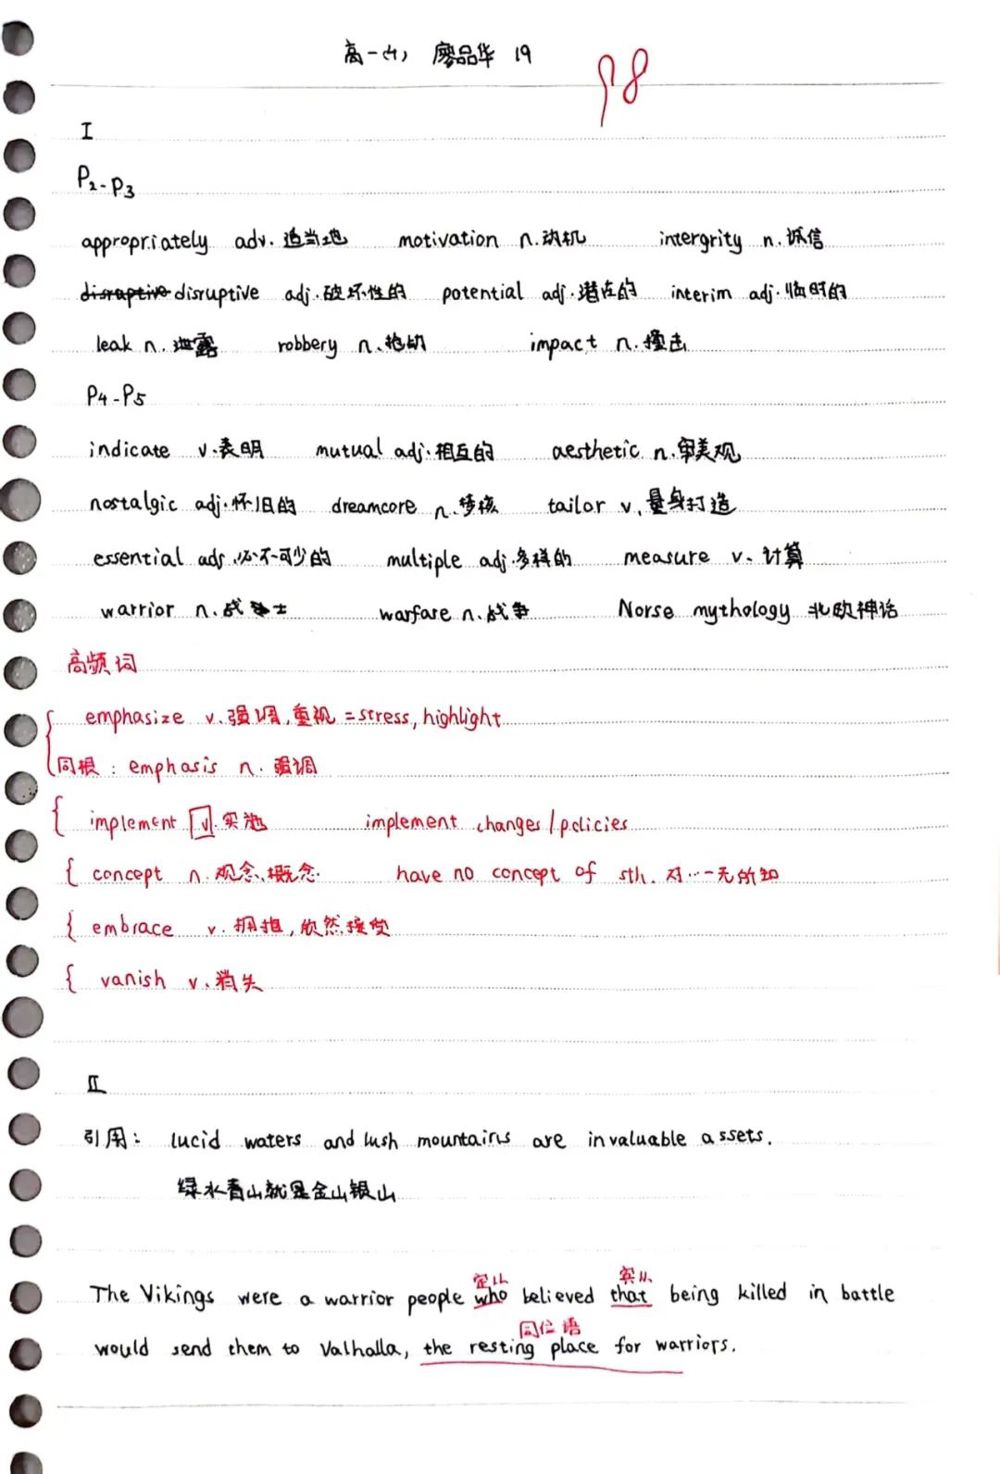 高一(4) 廖品华 19
98
I
P2-P3
appropriately adv.适当地 motivation n.动机 intergrity n.诚信
disraptive disruptive adj.破坏性的 potential adj.潜在的 interim adj.临时的
leak n.泄露 robbery n.抢劫 impact n.撞击
P4-P5
indicate v.表明 mutual adj.相互的 aesthetic n.审美观
nostalgic adj.怀旧的 dreamcore n.梦核 tailor v.量身打造
essential adj.必不可少的 multiple adj.多样的 measure v.计算
warrior n.战士 warfare n.战争 Norse mythology 北欧神话
高频词
emphasize v.强调,重视 =stress, highlight
同根: emphasis n.强调
implement v.实施 implement changes/policies
concept n.观念、概念 have no concept of sth. 对…一无所知
embrace v.拥抱,欣然接受
vanish v.消失
II
引用: lucid waters and lush mountains are invaluable assets.
绿水青山就是金山银山
定从 宾从
The Vikings were a warrior people who believed that being killed in battle
同位语
would send them to Valhalla, the resting place for warriors.